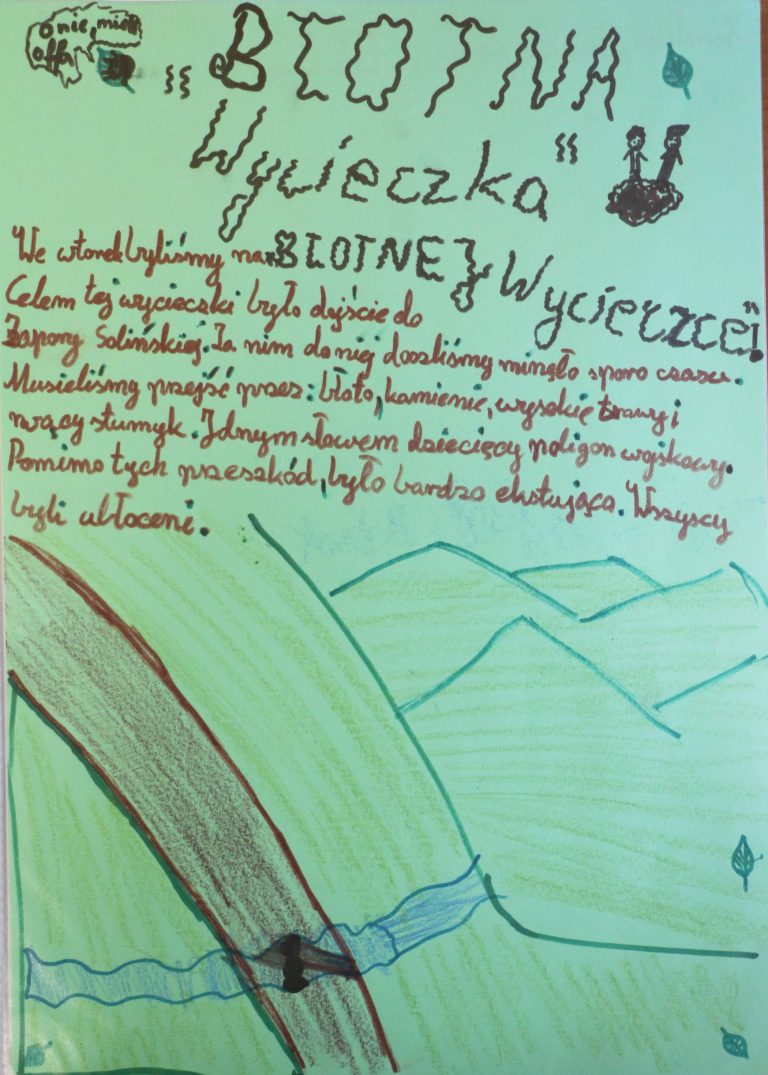 o nie, mich
offa
„BŁOTNA
Wycieczka”
We wtorek byliśmy na „BŁOTNEJ Wycieczce”!
Celem tej wycieczki było dojście do
Zapory Solińskiej. Za nim do niej doszliśmy minęło sporo czasu.
Musieliśmy przejść przez: błoto, kamienie, wysokie trawy i
rwący stumyk. Jednym słowem dziecięcy poligon wojskowy.
Pomimo tych przeszkód, było bardzo ekstująco. Wszyscy
byli ubłoceni.